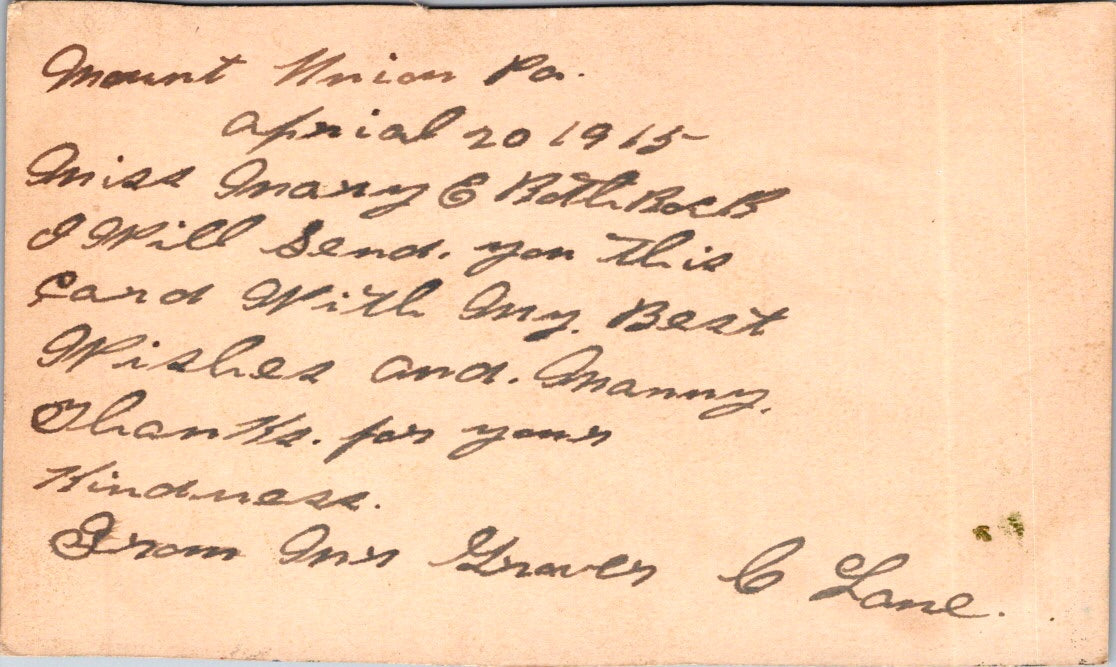 Mount Union Pa.
aprial 20 1915
Miss Mary E RothRocK
I Will Send. you This
Card With My. Best
Wishes and. Manny.
Thanks. for your
Kindness.
From Mr Grover C Lane.